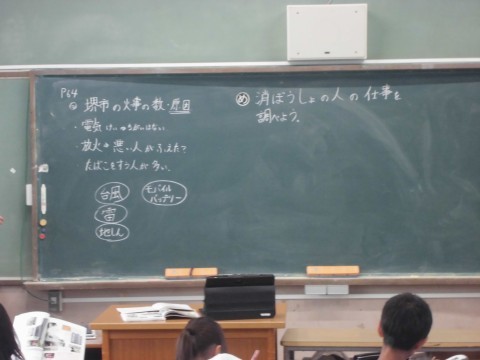 P64
堺市の火事の数・原因
・電気
・放火や悪い人がふえた?
たばこをすう人が多い。
台風
雷
地しん
モバイル
バッテリー
め 消ぼうしょの人の仕事を
調べよう。